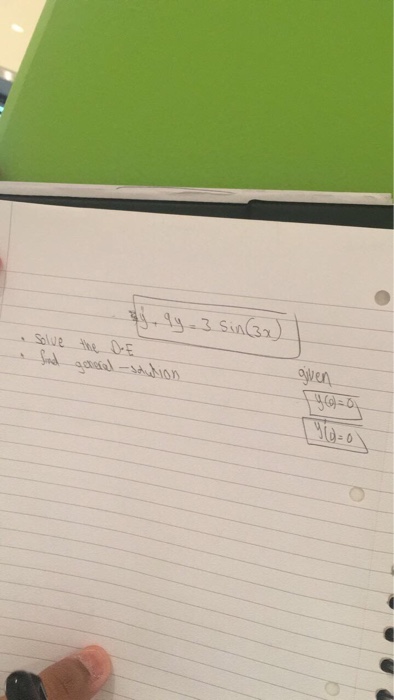 9y = 3 Sin(3x)
• solve the D.E
• find general - solution
given
y(0)=0
y'(0)=0